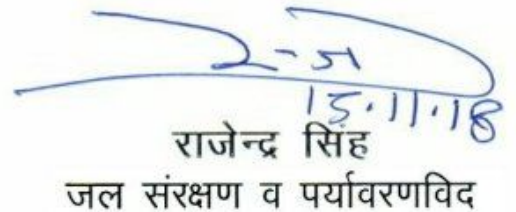 15.11.18
राजेन्द्र सिंह
जल संरक्षण व पर्यावरणविद